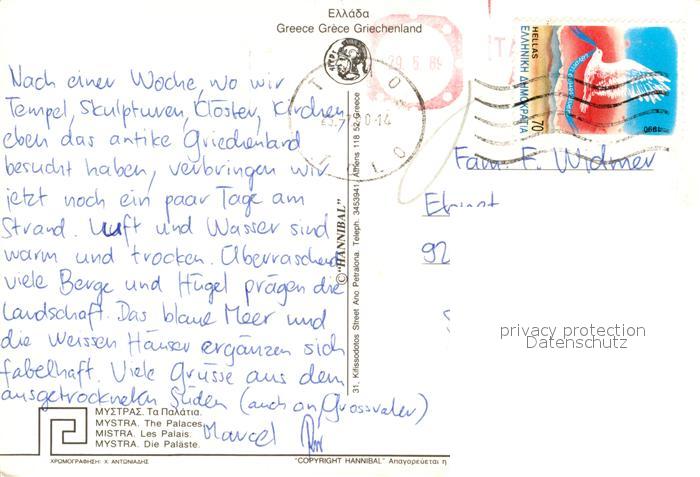 Ελλάδα
Greece Grèce Griechenland
Nach einer Woche, wo wir
Tempel, Skulpturen, Klöster, Kirchen
eben das antike Griechenland
besucht haben, verbringen wir
jetzt noch ein paar Tage am
Strand. Luft und Wasser sind
warm und trocken. Überraschend
viele Berge und Hügel prägen die
Landschaft. Das blaue Meer und
die weissen Häuser ergänzen sich
fabelhaft. Viele Grüsse aus dem
ausgetrockneten Süden (auch an Grossvater)
Marcel
ΜΥΣΤΡΑΣ. Τα Παλάτια.
MYSTRA. The Palaces.
MISTRA. Les Palais.
MYSTRA. Die Paläste.
ΧΡΩΜΟΓΡΑΦΗΣΗ: Χ. ΑΝΤΩΝΙΑΔΗΣ
"COPYRIGHT HANNIBAL" Απαγορεύεται η
© "HANNIBAL"
31, Kifissodotos Street Ano Petralona. Teleph. 3453941, Athens 118 52 Greece
29 5 89
HELLAS
ΕΛΛΗΝΙΚΗ ΔΗΜΟΚΡΑΤΙΑ
70
1990
Fam. F. Widmer
92
privacy protection
Datenschutz